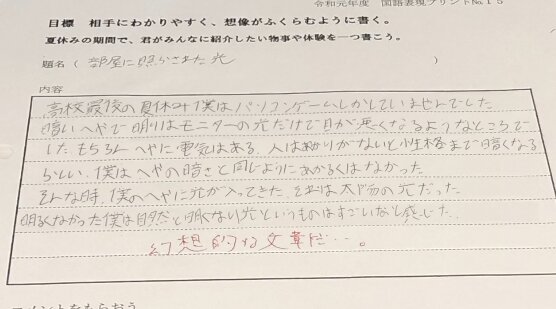 令和元年度 国語表現プリントNo.15
目標 相手にわかりやすく、想像がふくらむように書く。
夏休みの期間で、君がみんなに紹介したい物事や体験を一つ書こう。
題名( 部屋に照らされた光 )
内容
高校最後の夏休み僕はパソコンゲームしかしていませんでした
暗いへやで明りはモニターの光だけで目が悪くなるようなところで
した。もちろんへやに電気はある。人は明りがないと性格まで暗くなる
らしい、僕はへやの暗さと同じようにあかるくはなかった
そんな時、僕のへやに光が入ってきた。それは太陽の光だった
明るくなかった僕は
光というものはすごいなと感じた
幻想的な文章だ…。
コメントをもらおう